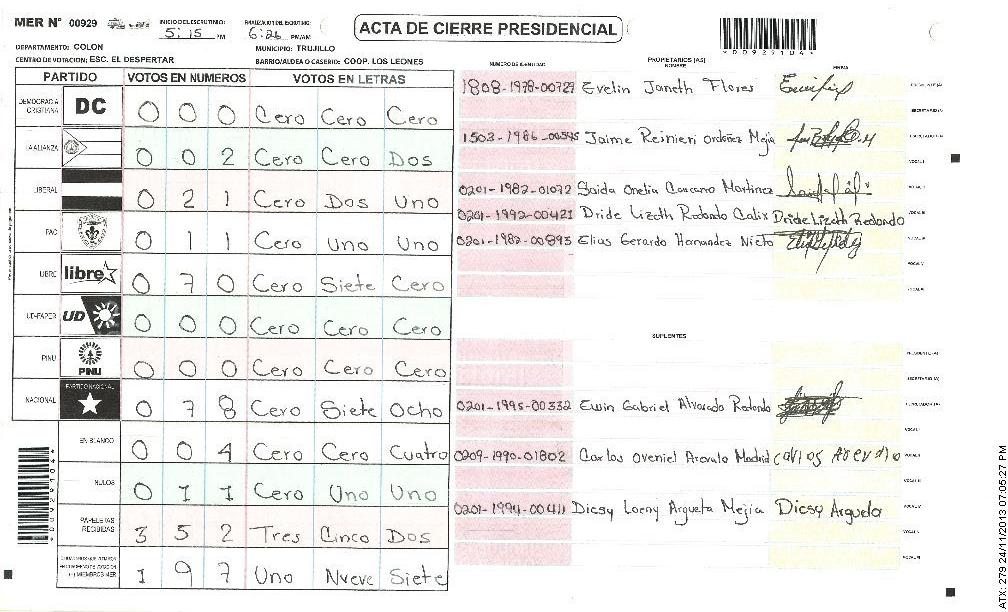 MER N° 00929 INICIO ESCRUTINIO: 5:15 PM FINALIZACION DEL ESCRUTINIO: 6:26 PM/AM ACTA DE CIERRE PRESIDENCIAL
DEPARTAMENTO: COLON MUNICIPIO: TRUJILLO
CENTRO DE VOTACION: ESC. EL DESPERTAR BARRIO/ALDEA O CASERIO: COOP. LOS LEONES
PARTIDO VOTOS EN NUMEROS VOTOS EN LETRAS NUMERO DE IDENTIDAD PROPIETARIOS (AS) NOMBRE FIRMA
DEMOCRACIA CRISTIANA DC 0 0 0 Cero Cero Cero
LA ALIANZA 0 0 2 Cero Cero Dos
LIBERAL 0 2 1 Cero Dos Uno
PAC 0 1 1 Cero Uno Uno
LIBRE libre 0 7 0 Cero Siete Cero
UD-FAPER UD 0 0 0 Cero Cero Cero
PINU PINU 0 0 0 Cero Cero Cero
NACIONAL PARTIDO NACIONAL 0 7 8 Cero Siete Ocho
EN BLANCO 0 0 4 Cero Cero Cuatro
NULOS 0 1 1 Cero Uno Uno
PAPELETAS RECIBIDAS 3 5 2 Tres Cinco Dos
1 9 7 Uno Nueve Siete
1808-1978-00727 Evelin Janeth Flores
1503-1986-00345 Jaime Reinieri ordoñez Mejia
0201-1982-01072 Saida Onelia Carcamo Martinez
0201-1992-00421 Dride Lizeth Redondo Calix Dride Lizeth Redondo
0201-1982-00893 Elias Gerardo Hernandez Nieto
SUPLENTES
0201-1995-00332 Ewin Gabriel Alvarado Redondo
0209-1990-01802 Carlos Oveniel Arevalo Madrid Carlos Arevalo
0201-1994-00411 Dicsy Loeny Argueta Mejia Dicsy Argueta
00929104
ATX: 279 24/11/2013 07:05:27 PM